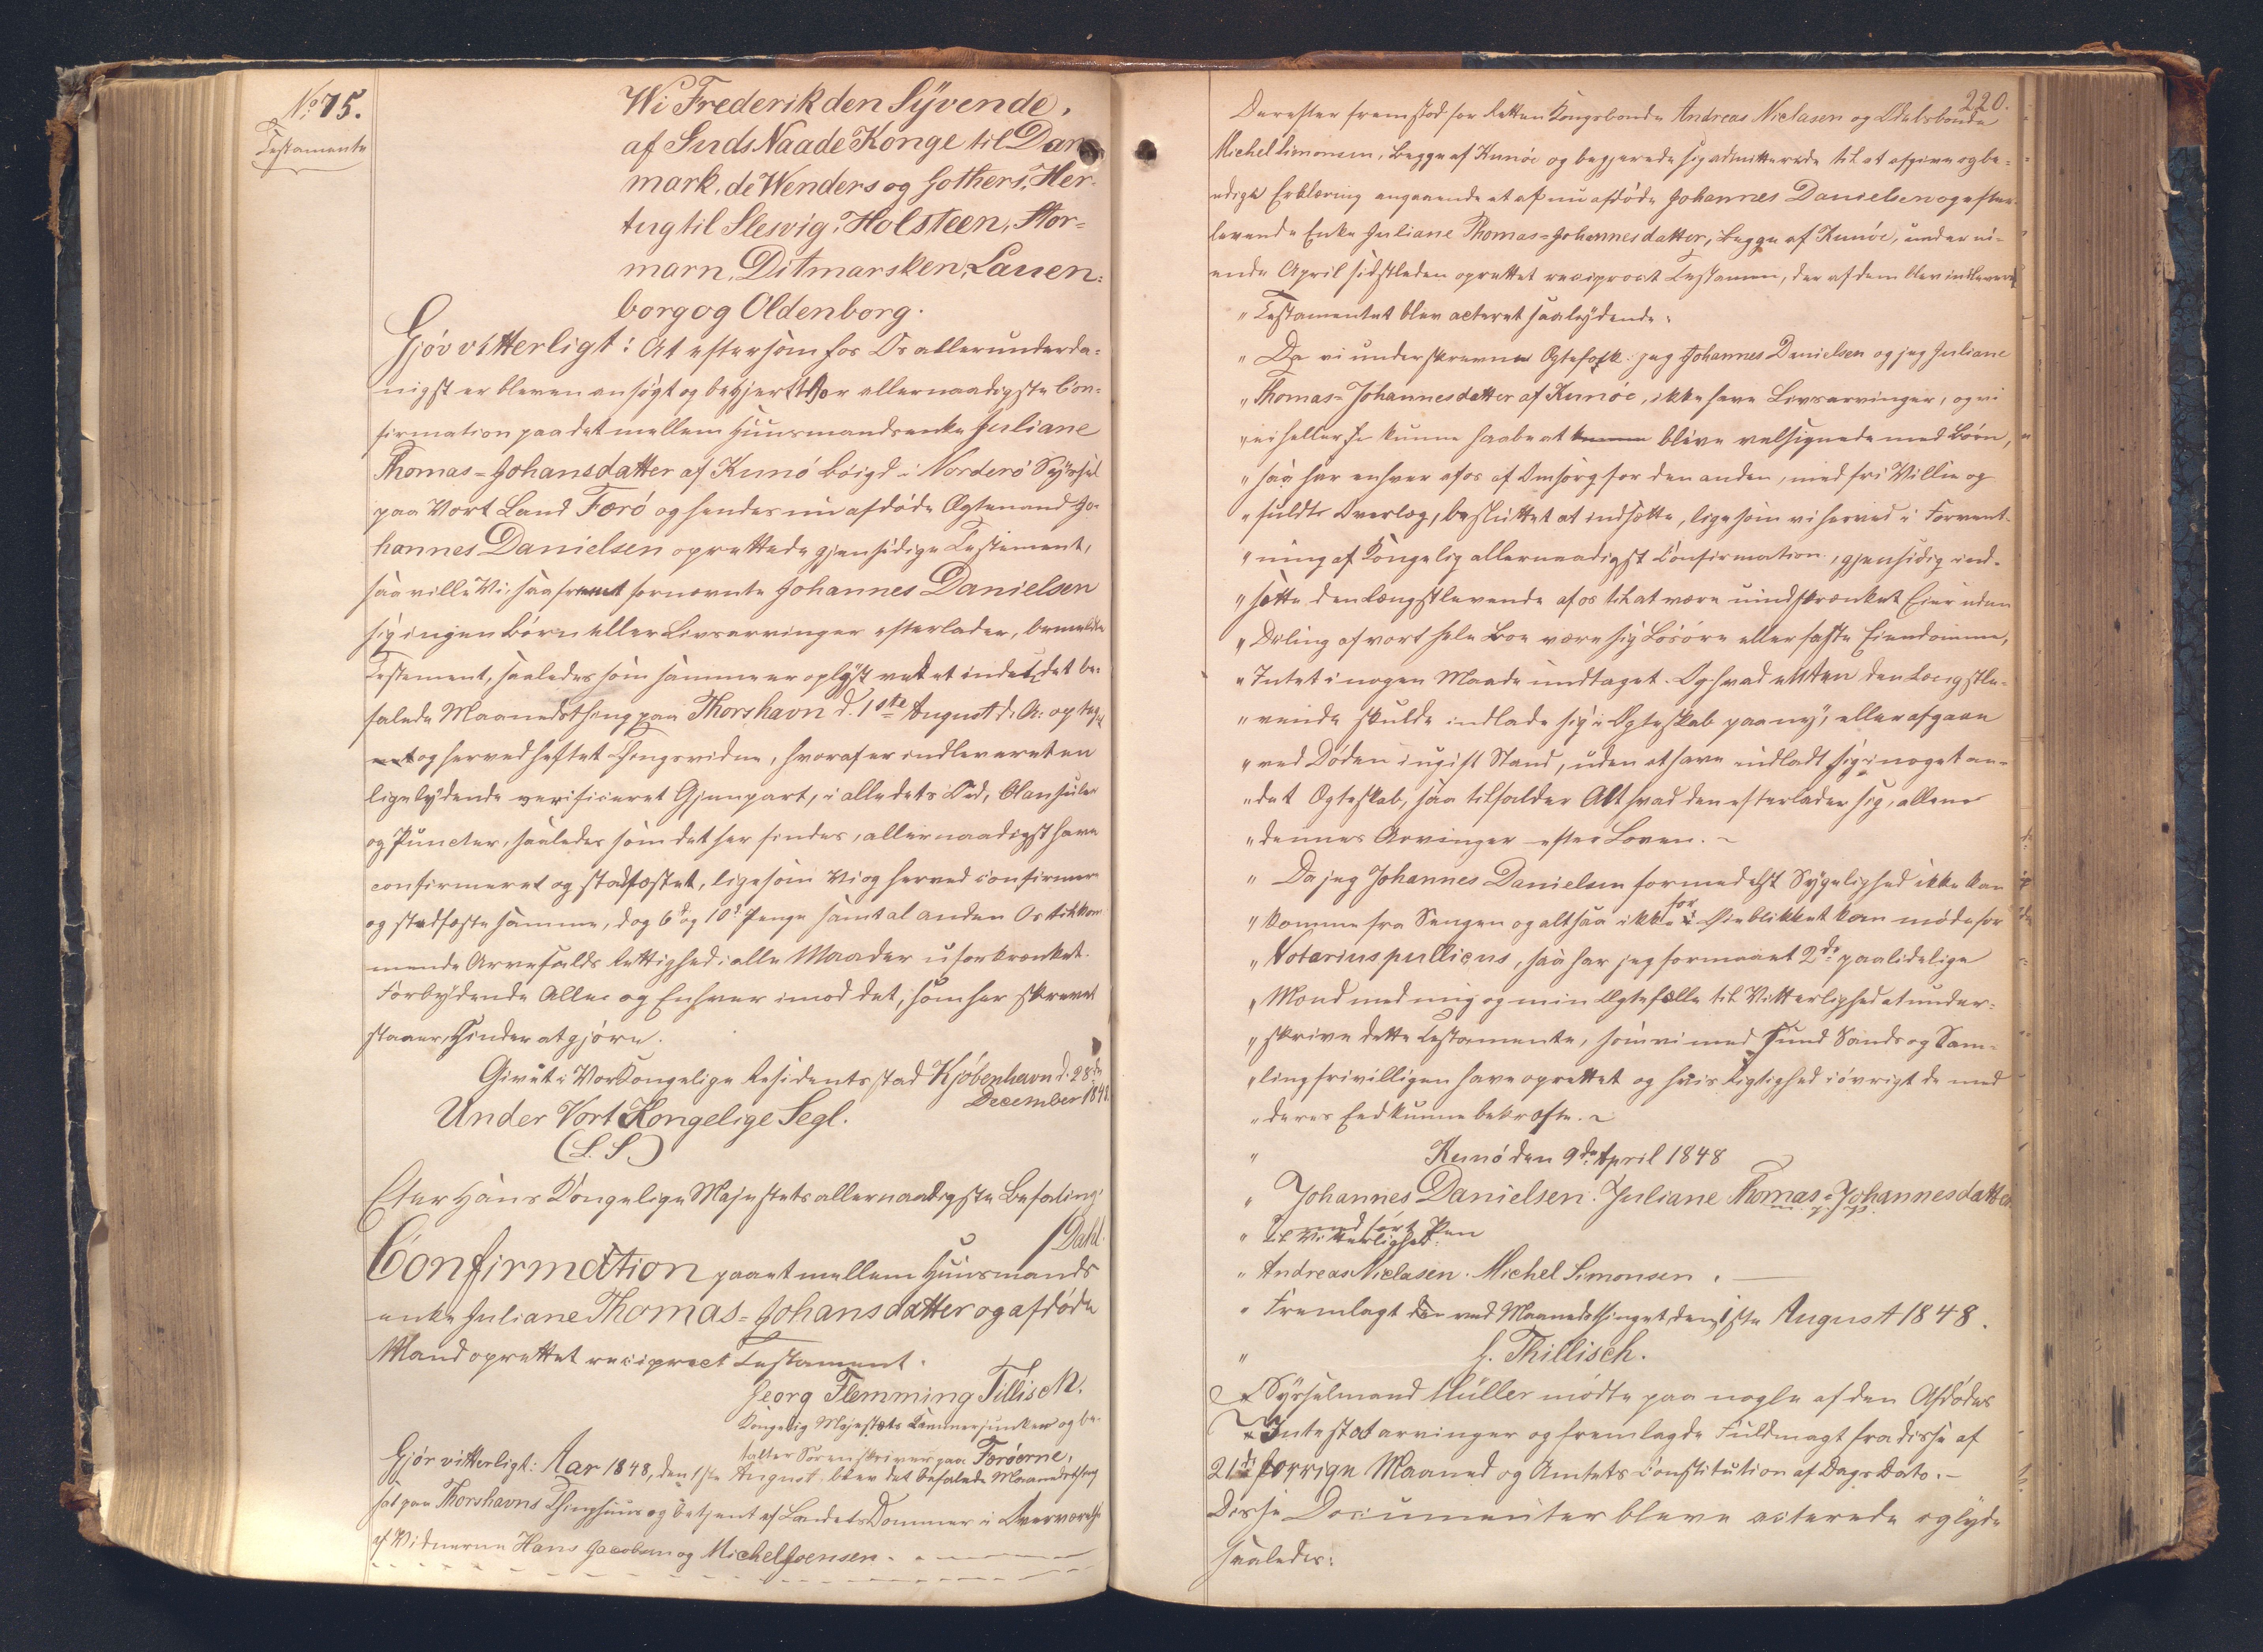 No. 75.
Testamente
Wi Frederik den Syvende,
af Guds Naade Konge til Dan
mark, de Wenders og Gothers, Her-
tug til Slesvig, Holsteen, Stor-
marn, Ditmarsken, Lauen-
borg og Oldenborg.
Gjøv vitterligt: At eftersom for Os allerunderda-
nigst er bleven ansøgt og begjert Vor allernaadigste Con-
firmation paa det mellem Huusmandsenke Juliane
Thomas-Johansdatter af Kunø Boigd i Norderø Syssel
paa Vort Land Færø og hendes nu afdøde Ægtemand Jo-
hannes Danielsen oprettede gjensidige Testament,
saa ville Vi, saafremt fornævnte Johannes Danielsen
sig ingen Børn eller Livsarvinger efterlader, bemeldte
Testament, saaledes som samme er oplyst ved et under det be-
falede Maanedsthing paa Thorshavn d. 1ste August d. A. optag
net og herved heftet Thingsvidne, hvoraf er indleveret en
ligelydende verificeret Gjenpart, i alle dets Ord, Clausuler
og Puncter, saaledes som det her findes, allernaadigst have
confirmeret og stadfæstet, ligesom Vi og herved confirmere
og stadfæste samme, dog 6te og 10de Penge samt al anden Os tilkom
mende Arvefalds Rettighed i alle Maader uforkrænket.
Forbydende Alle og Enhver imod det, som her skrevet
staaer, Hinder at gjøre.
Givet i Vor Kongelige Residentsstad Kjøbenhavn d. 28de
December 1848.
Under Vort Kongelige Segl.
(L. S.)
Efter Hans Kongelige Majestets allernaadigste Befaling
/Dahl
Confirmation paa et mellem Huusmands
enke Juliane Thomas-Johansdatter og afdøde
Mand oprettet reciproct Testament.
Georg Flemming Tillisch,
Kongelig Majestæts Kammerjunker og be-
stalter Sorenskriver paa Færøerne,
Gjør vitterligt: Aar 1848, den 1ste August blev det befalede Maanedsthing
sat paa Thorshavns Thinghuus og betjent af Landets Dommer i Overværelse
af Vidnerne Hans Jacobsen og Michel Joensen.
220.
Derefter fremstod for Retten Kongsbonde Andreas Niclasen og Odelsbonde
Michel Simonsen, begge af Kunøe og begjerede sig admitterede til at afgive og be-
edige Erklæring angaaende et af nu afdøde Johannes Danielsen og efter-
levende Enke Juliane Thomas-Johannesdatter, begge af Kunøe, under ni-
ende April sidstleden oprettet reciproct Testament, der af dem blev indleveret
" Testamentet blev acteret saalydende:
" Da vi underskrevne Ægtefolk: jeg Johannes Danielsen og jeg Juliane
" Thomas-Johannesdatter af Kunøe, ikke have Livsarvinger, og vi
" ei heller kunne haabe at blive velsignede med Børn,
" saa har enhver af os af Omsorg for den anden, med fri Villie og
" fuldt Overlæg, besluttet at indsætte, ligesom vi herved i Forvent-
" ning af Kongelig allernaadigst Confirmation, gjensidig ind-
" sætte den Længstlevende af os til at være uindskrænket Eier uden
" Deling af vort hele Boe være sig Løsøre eller faste Eiendomme,
" Intet i nogen Maade undtaget. Og hvad enten den Længstle-
" vende skulde indlade sig i Ægteskab paa ny, eller afgaae
" ved Døden i ugift Stand, uden at have indladt sig i noget an-
" det Ægteskab, saa tilfalder Alt hvad den efterlader sig, allene
" dennes Arvinger efter Loven.
" Da jeg Johannes Danielsen formedelst Sygelighed ikke kan
" komme fra Sengen og altsaa ikke for Øieblikket kan møde for
" Notarius publicus, saa har jeg formaaet 2de paalidelige
" Mænd med mig og min Ægtefælle til Vitterlighed at under-
" skrive dette Testamente, som vi med sund Sands og Sam-
" ling frivilligen have oprettet og hvis Rigtighed i øvrigt de med
" deres Eed kunne bekræfte.
" Kunø den 9de April 1848
" Johannes Danielsen. Juliane Thomas-Johannesdatter
m. f. P.
" med ført Pen
" til Vitterlighed:
" Andreas Niclasen. Michel Simonsen.
" Fremlagt ved Maanedsthinget den 1ste August 1848.
" G. Thillisch.
Sysselmand Müller mødte paa nogle af den Afdødes
Intestatarvinger og fremlagde Fuldmagt fra disse af
21de forrige Maaned og Amtets Constitution af Dags Dato.-
Disse Documenter bleve acterede og lyde
saaledes: